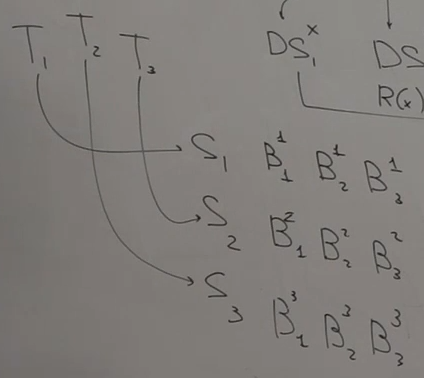 T₁ T₂ T₃ DS₁ˣ DS
R(x)
S₁ B₁¹ B₂¹ B₃¹
S₂ B₁² B₂² B₃²
S₃ B₁³ B₂³ B₃³